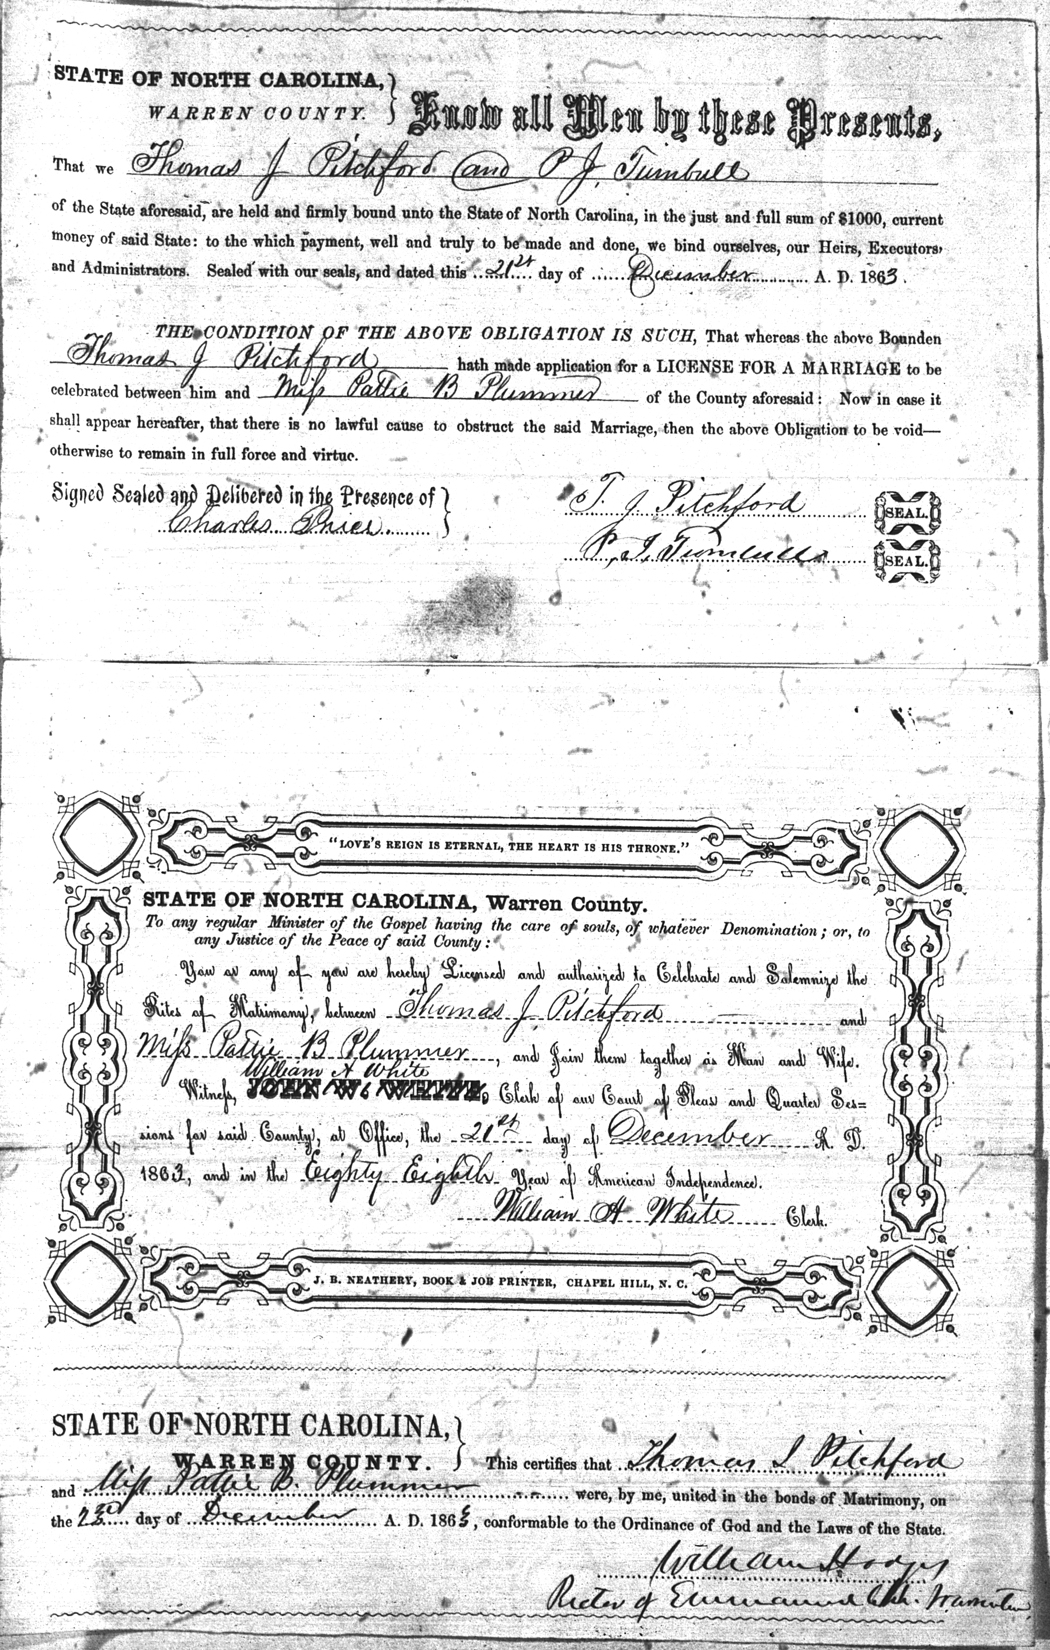 STATE OF NORTH CAROLINA,
WARREN COUNTY.
Know all Men by these Presents,
That we Thomas J Pitchford and P J, Turnbull
of the State aforesaid, are held and firmly bound unto the State of North Carolina, in the just and full sum of $1000, current
money of said State: to the which payment, well and truly to be made and done, we bind ourselves, our Heirs, Executors,
and Administrators. Sealed with our seals, and dated this 21st day of December A. D. 1863.
THE CONDITION OF THE ABOVE OBLIGATION IS SUCH, That whereas the above Bounden
Thomas J Pitchford hath made application for a LICENSE FOR A MARRIAGE to be
celebrated between him and Miss Pattie B Plummer of the County aforesaid: Now in case it
shall appear hereafter, that there is no lawful cause to obstruct the said Marriage, then the above Obligation to be void—
otherwise to remain in full force and virtue.
Signed Sealed and Delibered in the Presence of
Charles Price
T. J Pitchford SEAL.
P, J. Turnbull SEAL.
"LOVE'S REIGN IS ETERNAL, THE HEART IS HIS THRONE."
STATE OF NORTH CAROLINA, Warren County.
To any regular Minister of the Gospel having the care of souls, of whatever Denomination; or, to
any Justice of the Peace of said County:
You or any of you are hereby Licensed and authorized to Celebrate and Solemnize the
Rites of Matrimony, between Thomas J. Pitchford and
Miss Pattie B Plummer, and Join them together as Man and Wife.
William A White
Witness, JOHN W. WHITE, Clerk of our Court of Pleas and Quarter Ses=
sions for said County, at Office, the 21st day of December A. D.
1863, and in the Eighty Eighth Year of American Independence.
William A White Clerk.
J. B. NEATHERY, BOOK & JOB PRINTER, CHAPEL HILL, N. C.
STATE OF NORTH CAROLINA,
WARREN COUNTY.
This certifies that Thomas J Pitchford
and Miss Pattie B. Plummer were, by me, united in the bonds of Matrimony, on
the 23rd day of December A. D. 1863, conformable to the Ordinance of God and the Laws of the State.
William Hodges
Rector of Emmanuel Ch. Warrenton